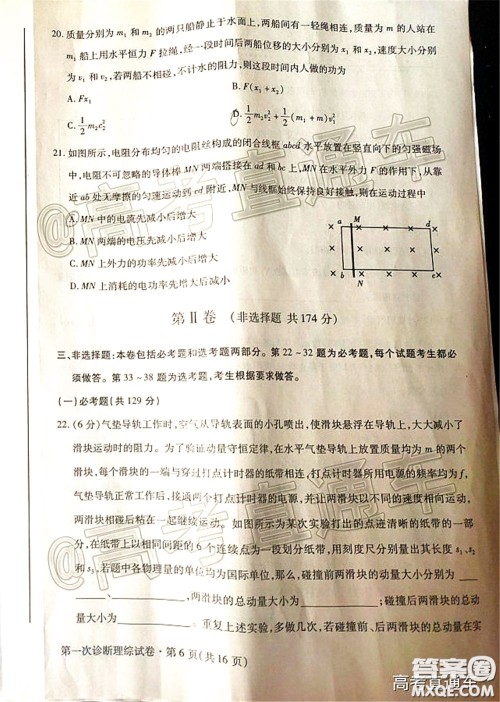 20. 质量分别为 m₁ 和 m₂ 的两只船静止于水面上, 两船间有一轻绳相连, 质量为 m 的人站在
m₁ 船上用水平恒力 F 拉绳, 经一段时间后两船位移的大小分别为 x₁ 和 x₂, 速度大小分别
为 v₁ 和 v₂, 若两船不相碰, 不计水的阻力, 则这段时间内人做的功为
A. Fx₁
B. F(x₁+x₂)
C. 1/2 m₂v₂²
D. 1/2 m₂v₂²+1/2(m₁+m)v₁²
21. 如图所示, 电阻分布均匀的电阻丝构成的闭合线框 abcd 水平放置在竖直向下的匀强磁场
中, 电阻不可忽略的导体棒 MN 两端搭接在 ad 和 bc 上, MN 在水平外力 F 的作用下, 从靠
近 ab 处无摩擦的匀速运动到 cd 附近, MN 与线框始终保持良好接触, 则在运动过程中
A. MN 中的电流先减小后增大
B. MN 两端的电压先减小后增大
C. MN 上外力的功率先减小后增大
D. MN 上消耗的电功率先增大后减小
a M d
b N c
第Ⅱ卷 (非选择题 共174分)
三、非选择题: 本卷包括必考题和选考题两部分。第 22～32 题为必考题, 每个试题考生都必
须做答。第 33～38 题为选考题, 考生根据要求做答。
(一) 必考题(共 129 分)
22. (6 分) 气垫导轨工作时, 空气从导轨表面的小孔喷出, 使滑块悬浮在导轨上, 大大减小了
滑块运动时的阻力。为了验证动量守恒定律, 在水平气垫导轨上放置质量均为 m 的两个
滑块, 每个滑块的一端与穿过打点计时器的纸带相连, 打点计时器所用电源的频率均为 f,
气垫导轨正常工作后, 接通两个打点计时器的电源, 并让两滑块以不同的速度相向运动,
两滑块相碰后粘在一起继续运动。如图所示为某次实验打出的点迹清晰的纸带的一部
分, 在纸带上以相同间距的 6 个连续点为一段划分纸带, 用刻度尺分别量出其长度 s₁、s₂
和 s₃, 若题中各物理量的单位均为国际单位, 那么, 碰撞前两滑块的动量大小分别为
、 , 两滑块的总动量大小为 ; 碰撞后两滑块的总动
量大小为 。重复上述实验, 多做几次, 若碰撞前、后两滑块的总动量在实
第一次诊断理综试卷·第 6 页(共 16 页)
@高考直通车
@高考直通车
高考直通车
答案圈
MXQE.COM